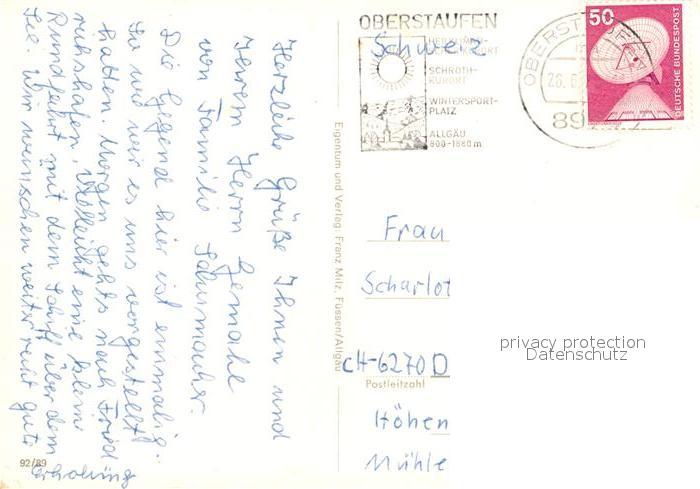 Herzliche Grüße Ihnen und
Ihrem Herrn Gemahl
von Familie Schumacher.
Die Gegend hier ist einmalig.
So wie wir es uns vorgestellt
hatten. Morgen gehts nach Fried
richshafen. Vielleicht eine kleine
Rundfahrt mit dem Schiff über den
See. Wir wünschen weiter recht gute
Erholung
92/89
Eigentum und Verlag: Franz Milz, Füssen/Allgäu
OBERSTAUFEN
Schweiz
HEILKLIMA-
KURORT
SCHROTH-
KURORT
WINTERSPORT-
PLATZ
ALLGÄU
800-1880 m
OBERSTAUFEN
26.6
897
50
DEUTSCHE BUNDESPOST
Frau
Scharlot
CH-6270 D
Postleitzahl
Höhen
Mühle
privacy protection
Datenschutz